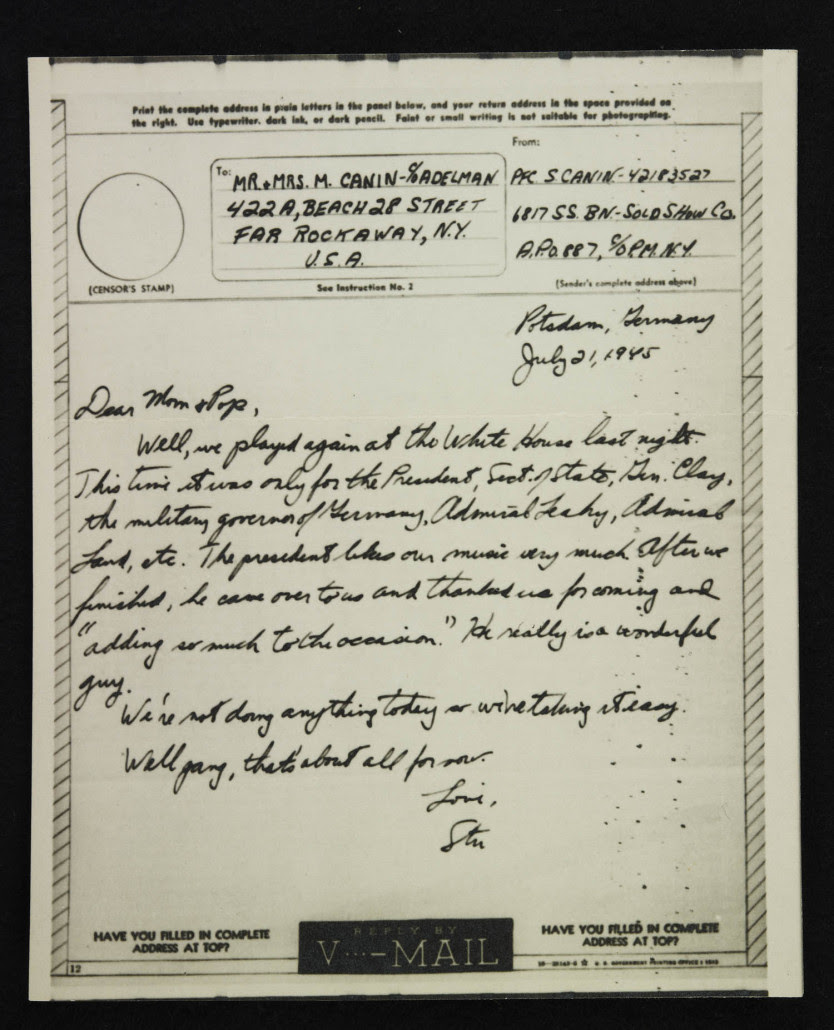 Print the complete address in plain letters in the panel below, and your return address in the space provided on
the right. Use typewriter, dark ink, or dark pencil. Faint or small writing is not suitable for photographing.
To:
MR. + MRS. M. CANIN - c/o ADELMAN
422A, BEACH 28 STREET
FAR ROCKAWAY, N.Y.
U.S.A.
From:
PFC. S. CANIN - 42183527
6817 SS. BN - SOLD SHOW CO.
A.P.O. 887, c/o P.M. N.Y.
(CENSOR'S STAMP)
See Instruction No. 2
(Sender's complete address above)
Potsdam, Germany
July 21, 1945
Dear Mom & Pop,
Well, we played again at the White House last night.
This time it was only for the President, Sect. of State, Gen. Clay,
the military governor of Germany, Admiral Leahy, Admiral
Land, etc. The president likes our music very much. After we
finished, he came over to us and thanked us for coming and
"adding so much to the occasion." He really is a wonderful
guy.
We're not doing anything today so we're taking it easy.
Well gang, that's about all for now.
Love,
Stu
HAVE YOU FILLED IN COMPLETE
ADDRESS AT TOP?
REPLY BY
V···—MAIL
HAVE YOU FILLED IN COMPLETE
ADDRESS AT TOP?
12
U. S. GOVERNMENT PRINTING OFFICE